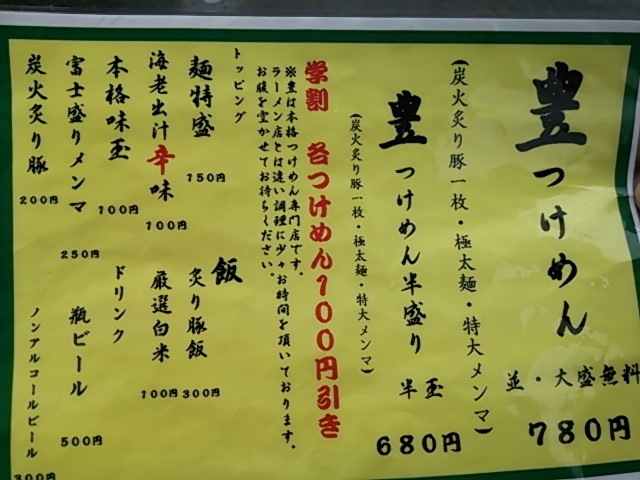 豊つけめん
並・大盛無料
780円
(炭火炙り豚一枚・極太麺・特大メンマ)
豊つけめん半盛り
半玉
680円
(炭火炙り豚一枚・極太麺・特大メンマ)
学割 各つけめん100円引き
※豊は本格つけめん専門店です。
ラーメン店とは違い調理に少々お時間を頂いております。
お腹を空かせてお待ちください。
トッピング
麺特盛
150円
海老出汁辛味
100円
本格味玉
100円
富士盛りメンマ
250円
炭火炙り豚
200円
飯
炙り豚飯
300円
厳選白米
100円
ドリンク
瓶ビール
500円
ノンアルコールビール
300円